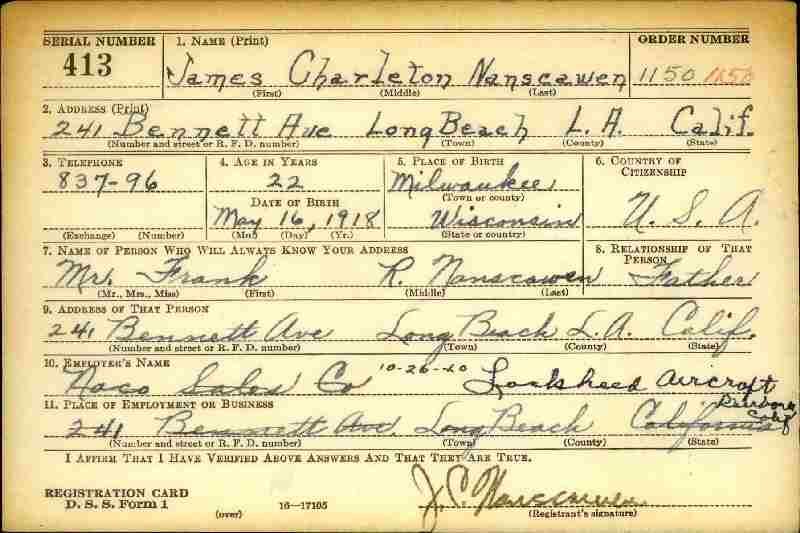 SERIAL NUMBER 1. NAME (Print) ORDER NUMBER
413 James Charleton Nanscawen 1150 1150
(First) (Middle) (Last)
2. ADDRESS (Print)
241 Bennett Ave Long Beach L.A. Calif.
(Number and street or R. F. D. number) (Town) (County) (State)
3. TELEPHONE 4. AGE IN YEARS 5. PLACE OF BIRTH 6. COUNTRY OF CITIZENSHIP
837-96 22 Milwaukee
(Town or county)
DATE OF BIRTH
May 16, 1918 Wisconsin U. S. A.
(Exchange) (Number) (Mo.) (Day) (Yr.) (State or country)
7. NAME OF PERSON WHO WILL ALWAYS KNOW YOUR ADDRESS 8. RELATIONSHIP OF THAT PERSON
Mr. Frank R. Nanscawen Father
(Mr., Mrs., Miss) (First) (Middle) (Last)
9. ADDRESS OF THAT PERSON
241 Bennett Ave Long Beach L.A. Calif.
(Number and street or R. F. D. number) (Town) (County) (State)
10. EMPLOYER'S NAME
Naco Sales Co 10-26-40 Lockheed Aircraft
11. PLACE OF EMPLOYMENT OR BUSINESS
241 Bennett Ave. Long Beach California Calif
(Number and street or R. F. D. number) (Town) (County) (State)
I AFFIRM THAT I HAVE VERIFIED ABOVE ANSWERS AND THAT THEY ARE TRUE.
REGISTRATION CARD
D. S. S. Form 1 (over) 16—17105 J. C. Nanscawen
(Registrant's signature)